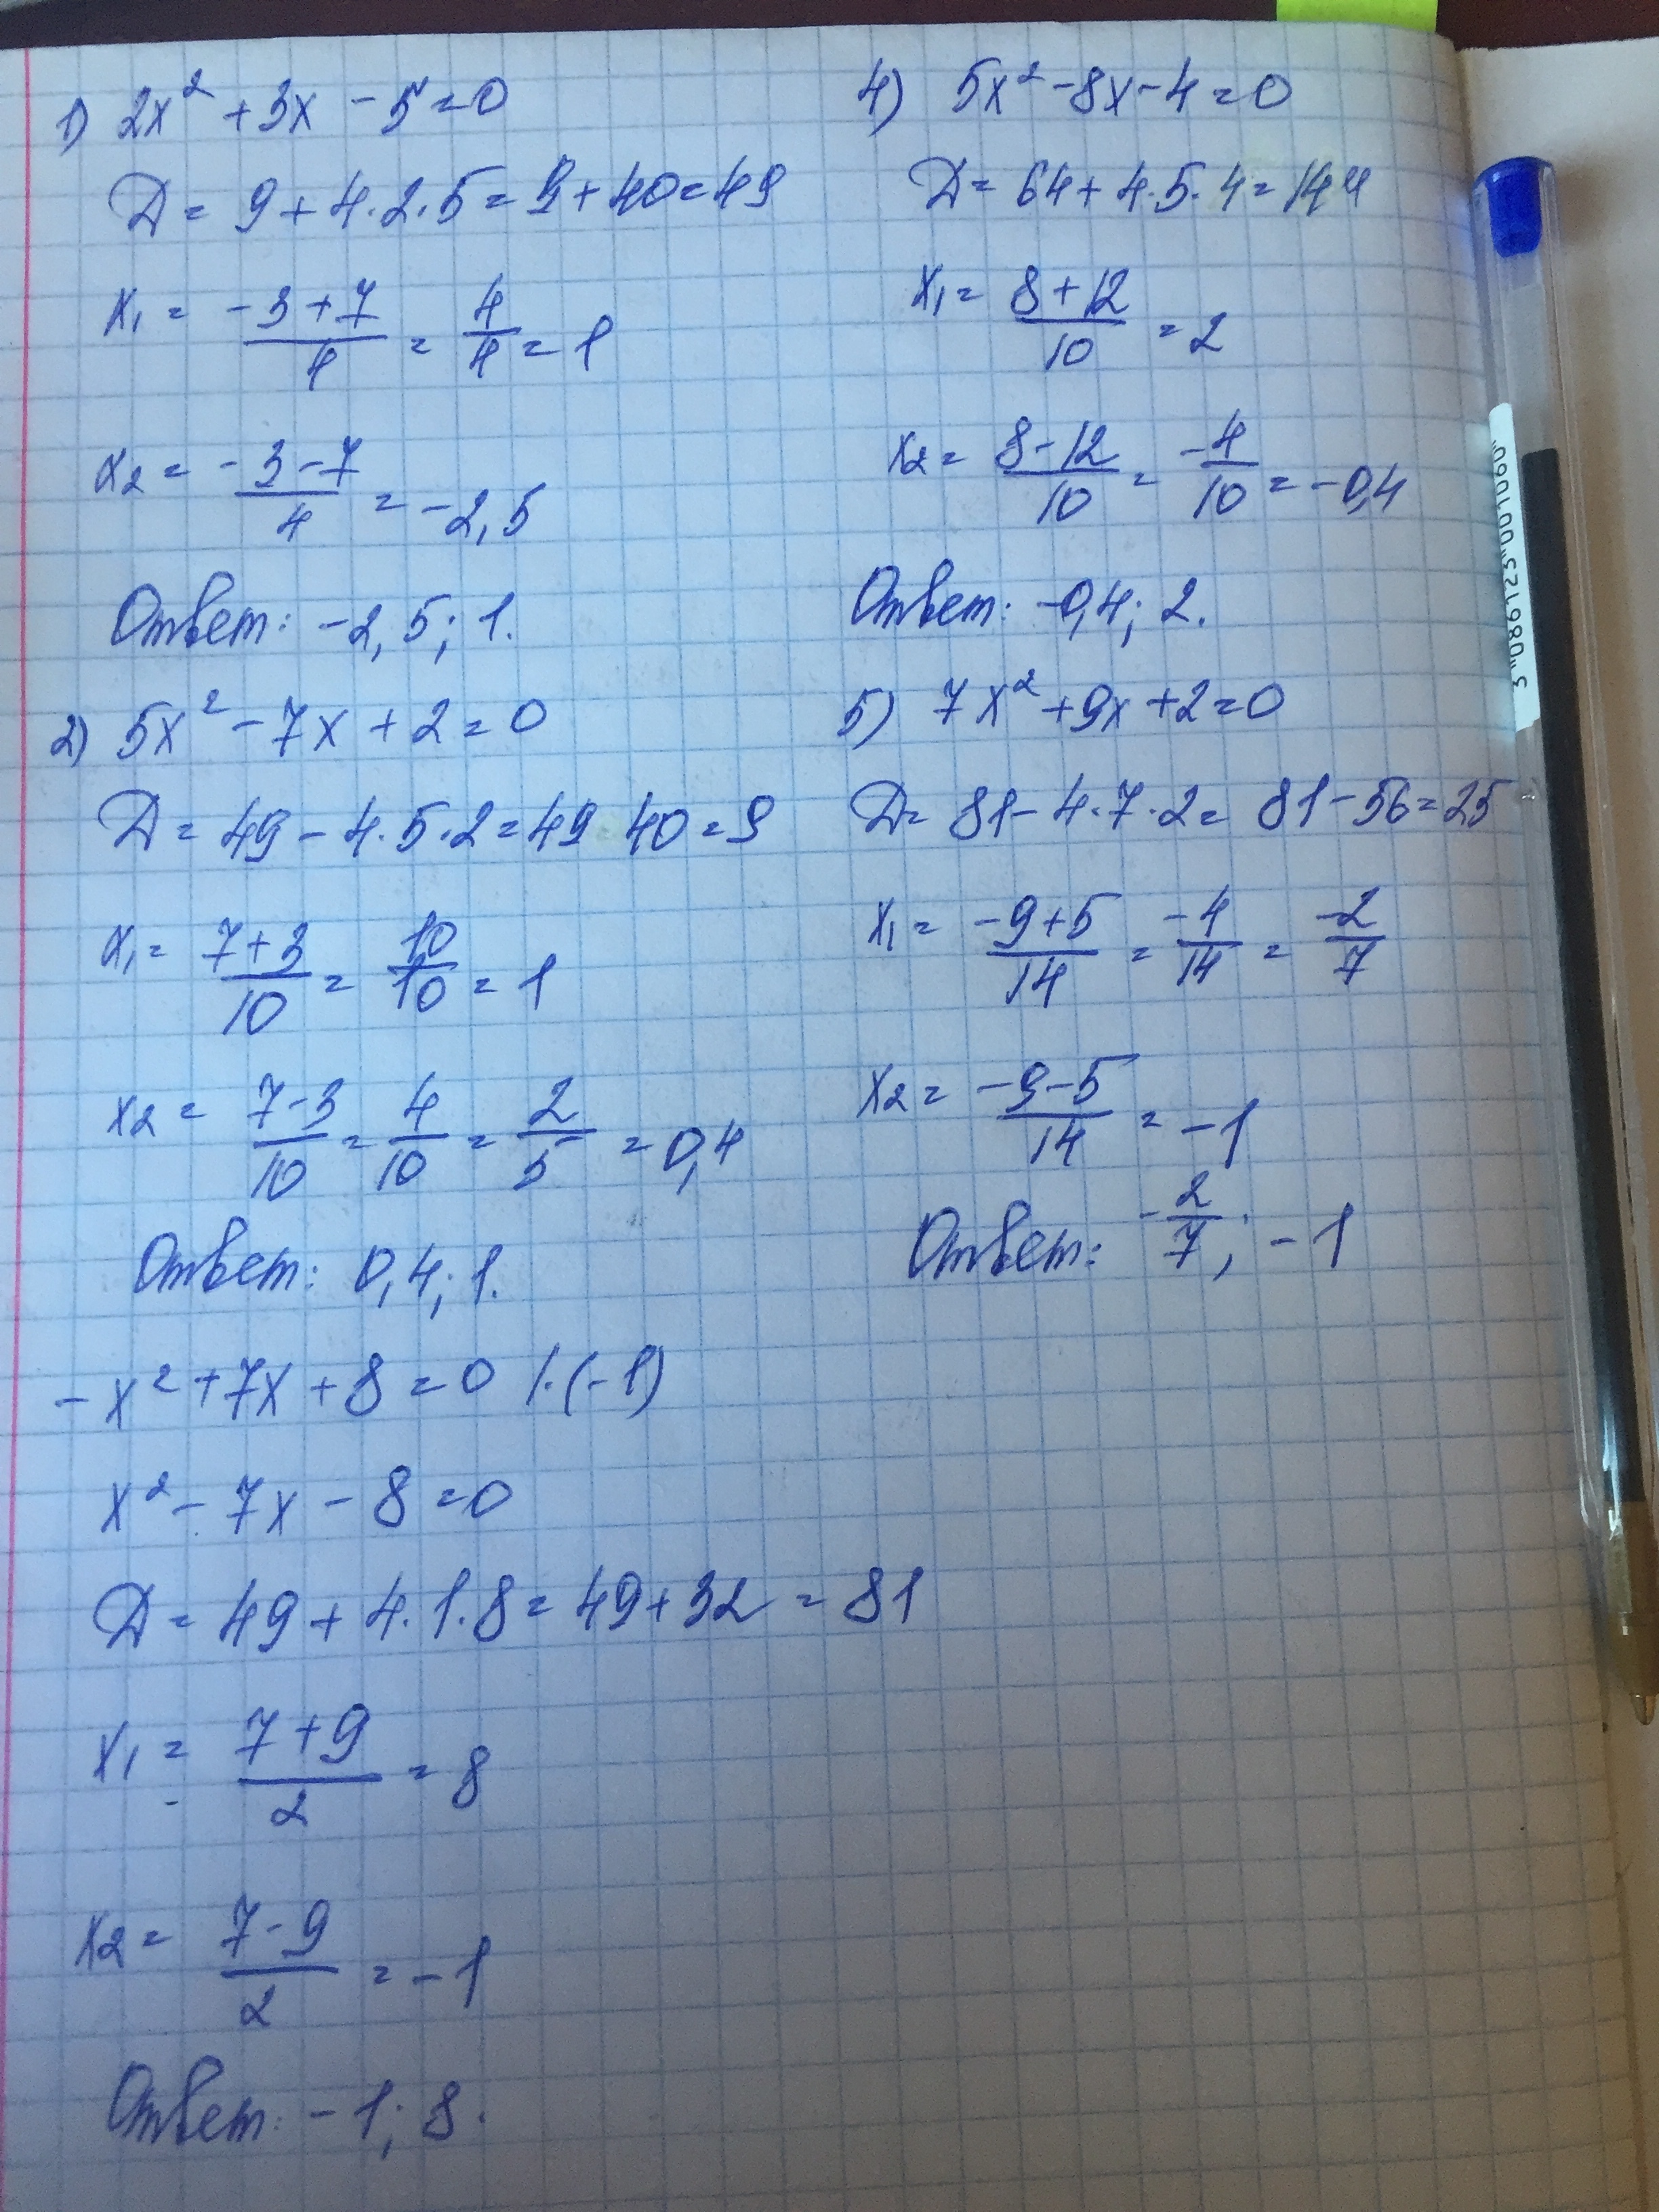 1) 2x² + 3x - 5 = 0
Д = 9 + 4·2·5 = 9 + 40 = 49
x₁ = (-3+7)/4 = 4/4 = 1
x₂ = (-3-7)/4 = -2,5
Ответ: -2,5; 1.
2) 5x² - 7x + 2 = 0
Д = 49 - 4·5·2 = 49 40 = 9
x₁ = (7+3)/10 = 10/10 = 1
x₂ = (7-3)/10 = 4/10 = 2/5 = 0,4
Ответ: 0,4; 1.
-x² + 7x + 8 = 0 /·(-1)
x² - 7x - 8 = 0
Д = 49 + 4·1·8 = 49 + 32 = 81
x₁ = (7+9)/2 = 8
x₂ = (7-9)/2 = -1
Ответ: -1; 8.
4) 5x² - 8x - 4 = 0
Д = 64 + 4·5·4 = 144
x₁ = (8+12)/10 = 2
x₂ = (8-12)/10 = -4/10 = -0,4
Ответ: -0,4; 2.
5) 7x² + 9x + 2 = 0
Д = 81 - 4·7·2 = 81 - 56 = 25
x₁ = (-9+5)/14 = -4/14 = -2/7
x₂ = (-9-5)/14 = -1
Ответ: -2/7; -1
3"086123"001060"